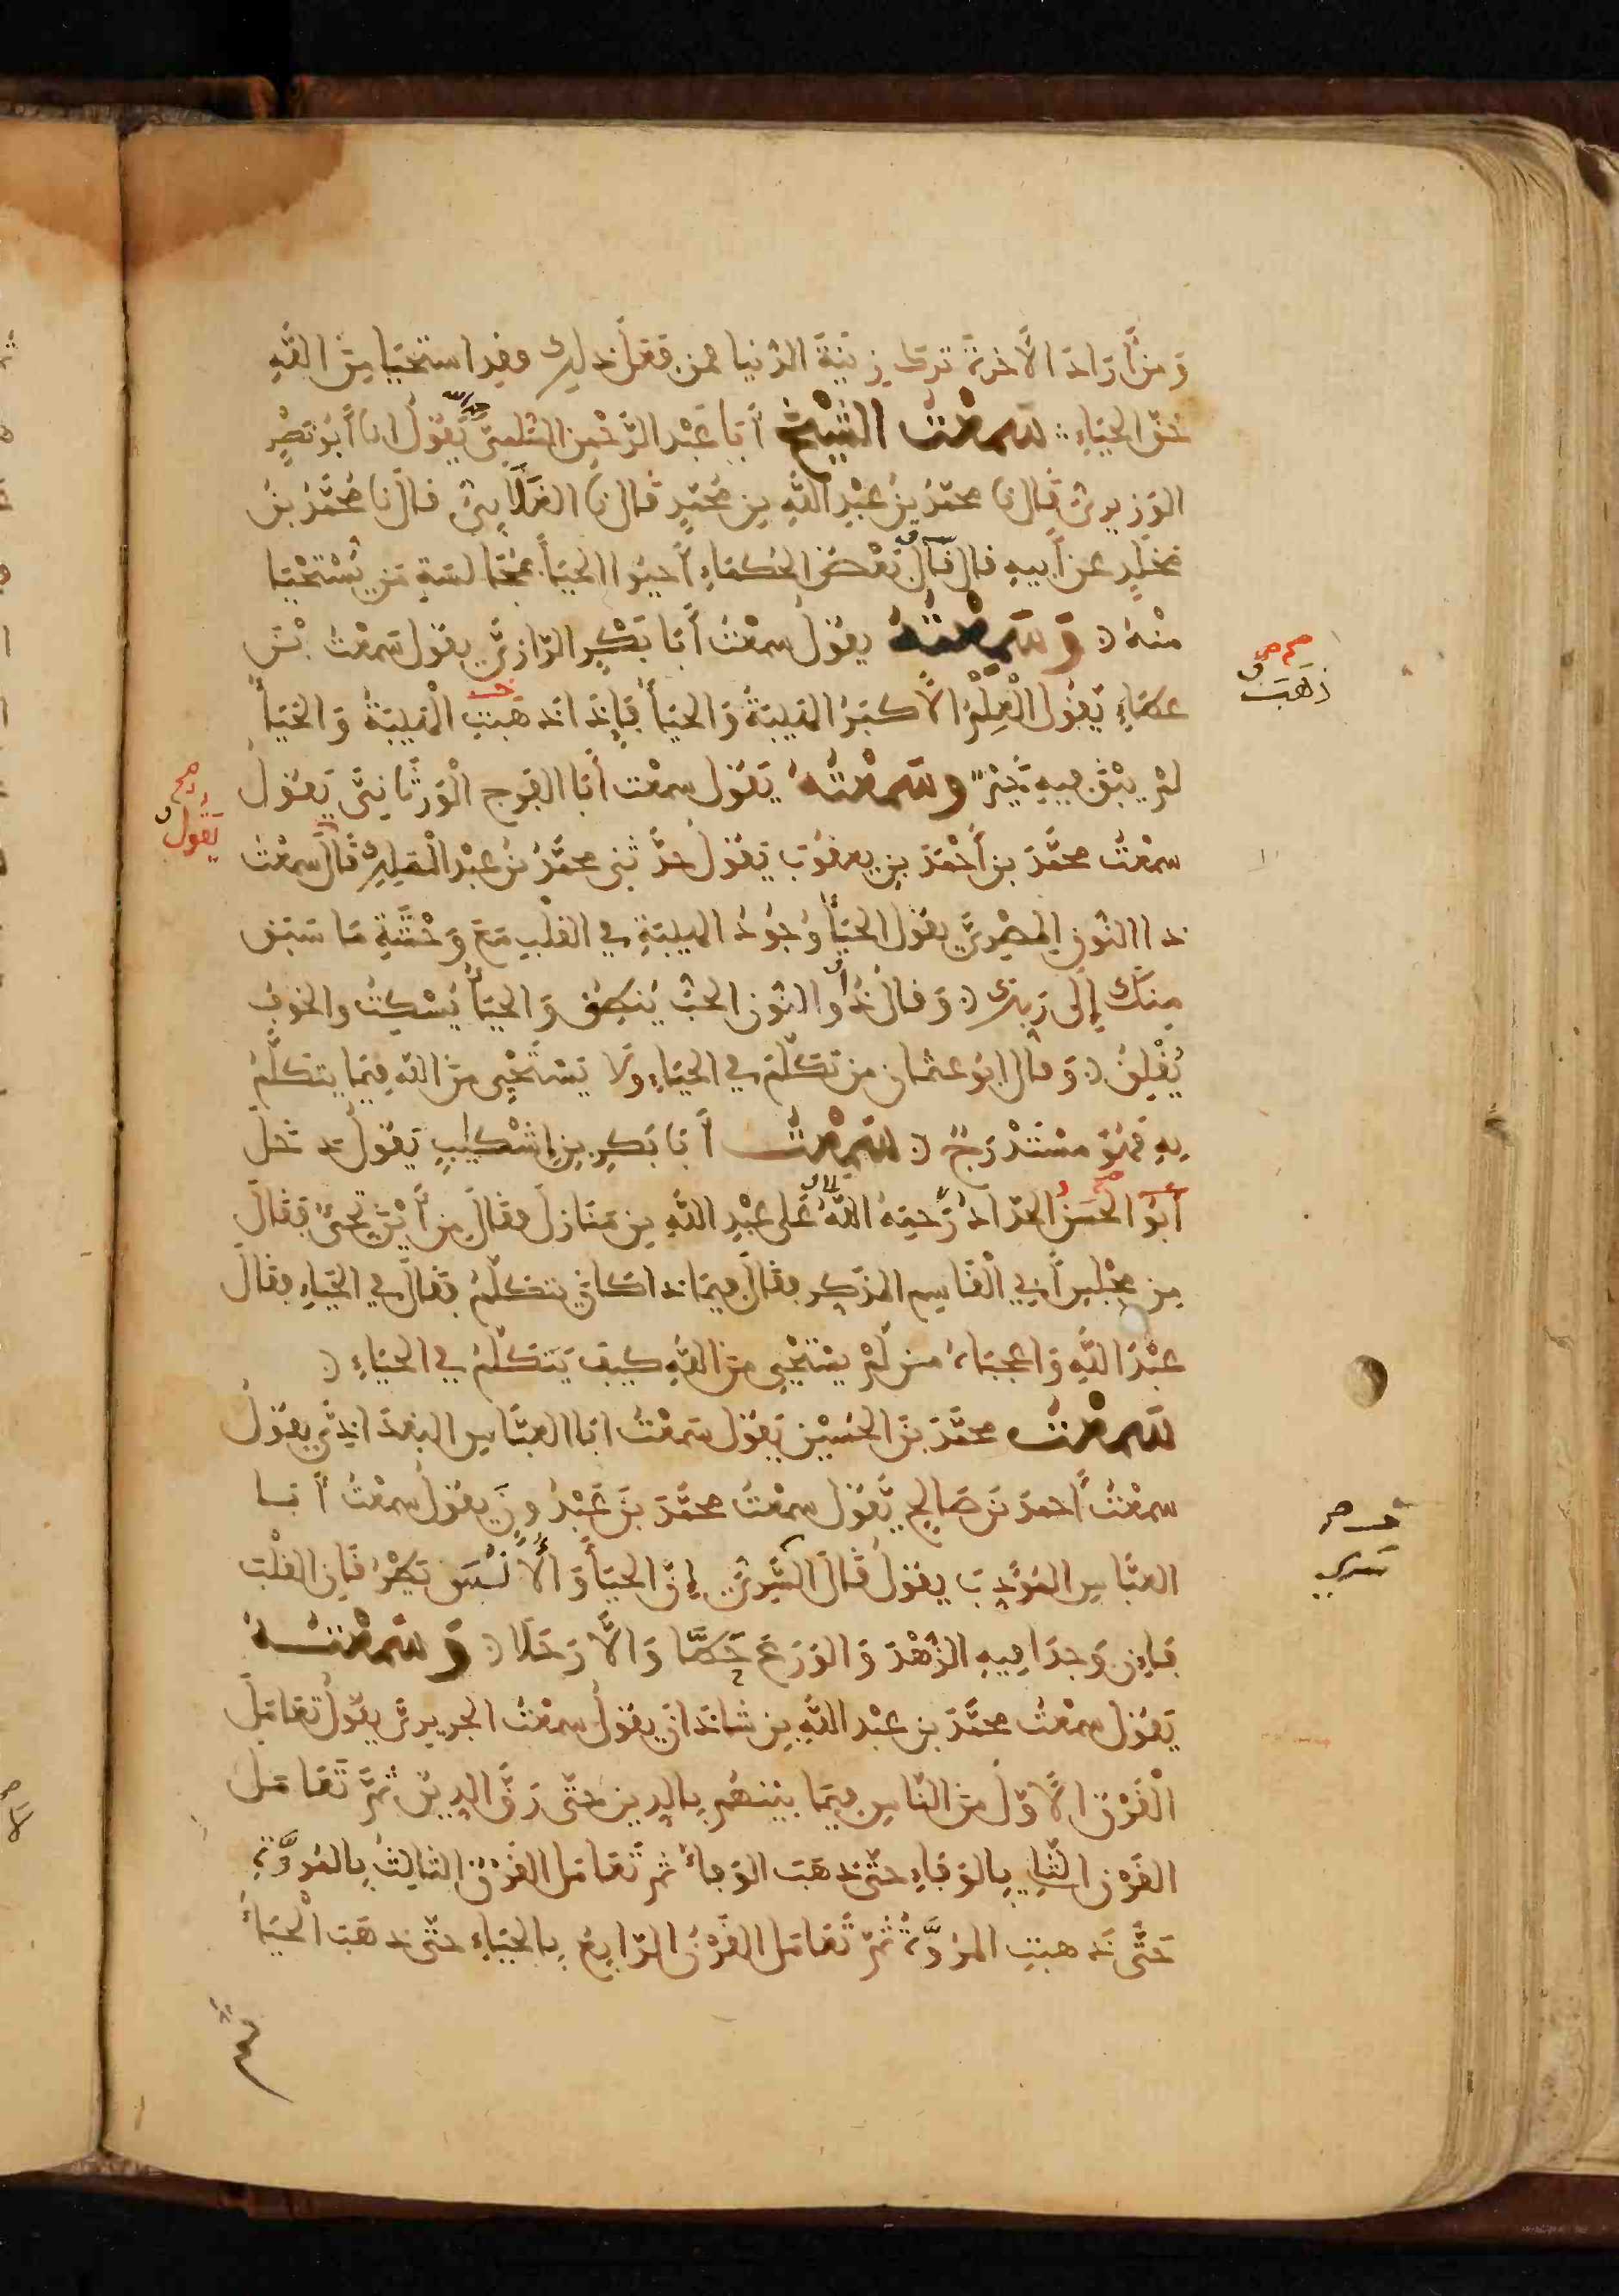 وَمَنْ أَرَادَ الْآخِرَةَ تَرَكَ زِينَةَ الدُّنْيَا فمن فعل ذلك فقد استحيا مِنَ اللّهِ
حَقَّ الحَيَاءِ سَمِعْتُ الشَّيْخَ أَبَا عَبْدِ الرَّحْمٰنِ السُّلَمِيَّ يَقُولُ انا أَبُو نَصْرٍ
الوَزِيرِيُّ قَالَ نا محمّدُ بنُ عَبْدِ اللّهِ بنِ مُحَمَّدٍ قَالَ نا الغَلَابِيُّ قال نا مُحَمَّدُ بنُ
مَخْلَدٍ عن أَبِيهِ قال قَالَ بَعْضُ الحُكَمَاءِ أَحْيُوا الحَيَاءَ بِمُجَالَسَةِ مَنْ يُسْتَحْيَا
مِنْهُ وَسَمِعْتُهُ يَقُولُ سمعْتُ أَبَا بَكْرٍ الرَّازِيَّ يقول سَمِعْتُ ابْنَ
عَطَاءٍ يَقُولُ الْعِلْمُ الْأَكْبَرُ الهَيْبَةُ وَالحَيَاءُ فَإِذَا ذَهَبَتِ الْهَيْبَةُ وَالحَيَاءُ
لَمْ يَبْقَ فِيهِ خَيْرٌ وَسَمِعْتُهُ يَقُولُ سمعْت أَبَا الفَرَجِ الْوَرَثَانِيَّ يَقُولُ
سمعْتُ محمَّدَ بن أَحْمَدَ بنِ يعقوبَ يَقُولُ حَدَّثَنِي محمَّدُ بنُ عَبْدِ الْمَلِكِ قَالَ سمعْتُ
ذا النُّونِ المِصْرِيَّ يقُولُ الحَيَاءُ وُجُودُ الهَيْبَةِ في القَلْبِ مَعَ وَحْشَةِ مَا سَبَقَ
مِنْكَ إِلَى رَبِّكَ وَقال ذُو النُّونِ الحُبُّ يُنْطِقُ وَالحَيَاءُ يُسْكِتُ والخوفُ
يُقْلِقُ وَقَالَ ابو عثمان من تَكَلَّمَ في الحَيَاءِ وَلَا يَسْتَحْيِي مِنَ اللّهِ فِيمَا يَتَكَلَّمُ
بِهِ فَهُوَ مُسْتَدْرَجٌ سَمِعْتُ أَبَا بَكْرِ بنِ إِشْكَابٍ يَقُولُ دَخَلَ
أَبُو الحَسَنِ الحَدَّادُ رَحِمَهُ اللّهُ عَلَى عَبْدِ اللّهِ بنِ مَنَازِلَ فقال مِنْ أَيْنَ تَجِيءُ فقَالَ
مِنْ مَجْلِسِ أَبِي الْقَاسِمِ المُذَكِّرِ فقَالَ فِيمَاذَا كَانَ يَتَكَلَّمُ فقَالَ في الحَيَاءِ فقالَ
عَبْدُ اللّهِ وَاعجَبَاهُ مَنْ لَمْ يَسْتَحْيِ مِنَ اللّهِ كَيْفَ يَتَكَلَّمُ في الحَيَاءِ
سَمِعْتُ محمَّدَ بنَ الحُسَيْنِ يَقُولُ سَمِعْتُ ابَا العَبَّاسِ البَغْدَاذِيَّ يقولُ
سمعْتُ أَحمدَ بنَ صَالِحٍ يَّقُولُ سمعْتُ محمَّدَ بنَ عَبْدُونَ يَقُولُ سمعْتُ أَبَا
العبَّاسِ المُؤَدِّبَ يقولُ قَالَ السَّرِيُّ إِنَّ الحَيَاءَ وَالْأُنْسَ يَطْرُقَانِ القلْبَ
فَإِنْ وَجَدَا فِيهِ الزُّهْدَ وَالوَرَعَ حَطَّا وَالَّا رَحَلَا وَسَمِعْتُهُ
يَقُولُ سمعْتُ محمَّدَ بن عَبْدِ اللّهِ بنِ شَاذَانَ يقولُ سمعْتُ الجريريَّ يقُولُ تَعَامَلَ
الْقَرْنُ الْأَوَّلُ مِنَ النَّاسِ فِيمَا بَيْنَهُم بِالدِينِ حتَّى رَقَّ الدِينُ ثُمَّ تَعَامَلَ
القَرْنُ الثَّانِي بِالوَفَاءِ حتَّى ذهَبَ الوَفاءُ ثم تَعَامَلَ القَرْنُ الثالِثُ بِالمُرُوَّةِ
حَتَّى ذَهبتِ المرُوَّةُ ثُمَّ تَعَامَلَ القَرْنُ الرَّابِعُ بِالحَيَاءِ حتَّى ذهَبَ الْحَيَاءُ
ذَهَبَ
يَقُولُ